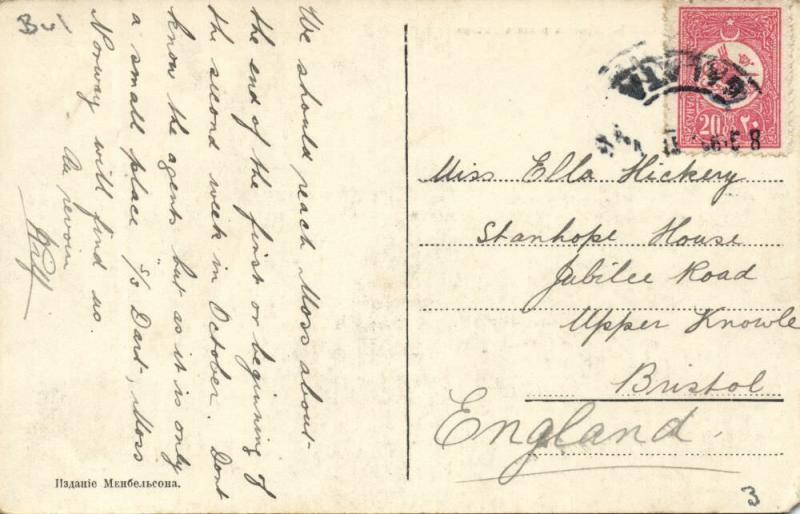 Bul
We should reach Moss about
the end of the first or beginning of
the second week in October. Dont
know the agents but as it is only
a small place S/S Dart, Moss
Norway will find us.
Au revoir
GALATA
20
٢٠
8
Miss Ella Hickery
Stanhope House
Jubilee Road
Upper Knowle
Bristol
England
Изданіе Менбельсона.
3